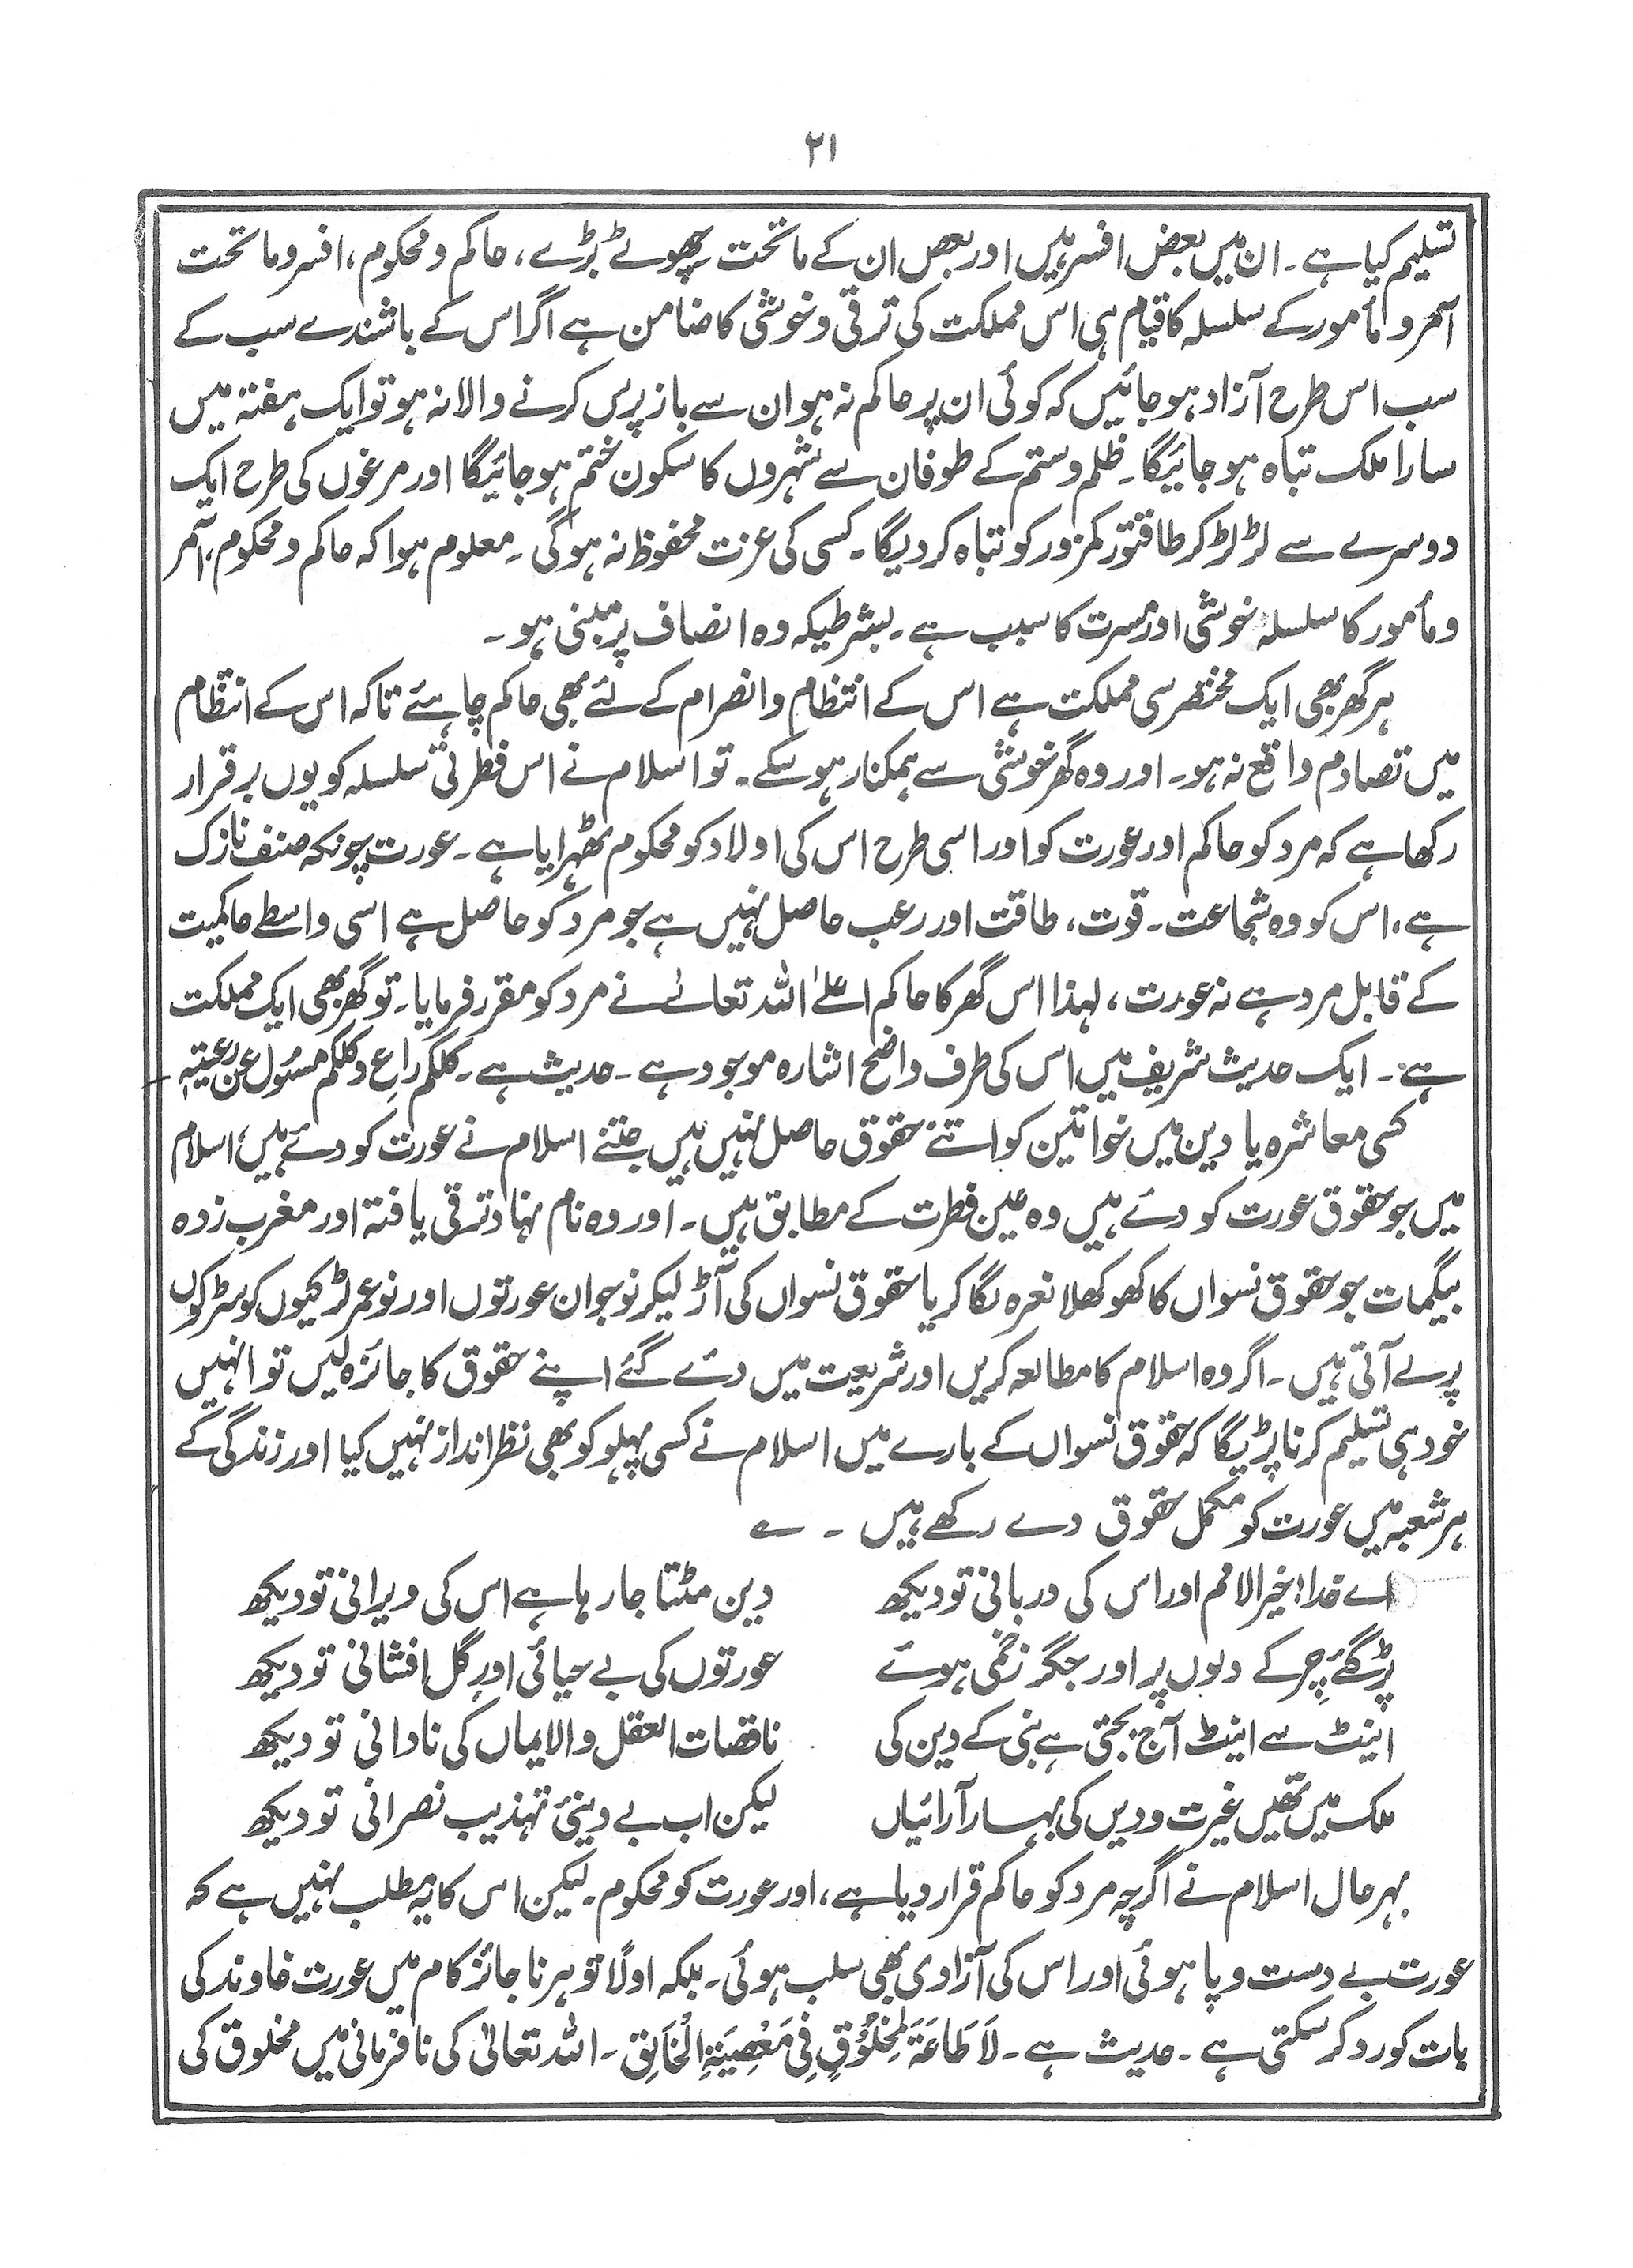 ۲۱
تسلیم کیا ہے۔ ان میں بعض افسر ہیں اور بعض ان کے ماتحت۔ چھوٹے بڑے، حاکم و محکوم، افسر و ماتحت
آمر و مأمور کے سلسلہ کا قیام ہی اس مملکت کی ترقی و خوشی کا ضامن ہے اگر اس کے باشندے سب کے
سب اس طرح آزاد ہو جائیں کہ کوئی ان پر حاکم نہ ہو ان سے باز پرس کرنے والا نہ ہو تو ایک ہفتہ میں
سارا ملک تباہ ہو جائیگا۔ ظلم و ستم کے طوفان سے شہروں کا سکون ختم ہو جائیگا اور مرغوں کی طرح ایک
دوسرے سے لڑ لڑ کر طاقتور کمزور کو تباہ کر دیگا۔ کسی کی عزت محفوظ نہ ہوگی۔ معلوم ہوا کہ حاکم و محکوم، آمر
و مأمور کا سلسلہ خوشی اور مسرت کا سبب ہے۔ بشرطیکہ وہ انصاف پر مبنی ہو۔
ہر گھر بھی ایک مختصر سی مملکت ہے اس کے انتظام و انصرام کے لئے بھی حاکم چاہئے تاکہ اس کے انتظام
میں تصادم واقع نہ ہو۔ اور وہ گھر خوشی سے ہمکنار ہو سکے۔ تو اسلام نے اس فطرتی سلسلہ کو یوں برقرار
رکھا ہے کہ مرد کو حاکم اور عورت کو اور اسی طرح اس کی اولاد کو محکوم ٹھہرایا ہے۔ عورت چونکہ صنف نازک
ہے، اس کو وہ شجاعت۔ قوت، طاقت اور رعب حاصل نہیں ہے جو مرد کو حاصل ہے اسی واسطے حاکمیت
کے قابل مرد ہے نہ عورت، لہذا اس گھر کا حاکم اعلےٰ اللہ تعالےٰ نے مرد کو مقرر فرمایا۔ تو گھر بھی ایک مملکت
ہے۔ ایک حدیث شریف میں اس کی طرف واضح اشارہ موجود ہے۔ حدیث ہے۔ کلکم راعٍ وکلکم مسئول عن رعیتہٖ
کسی معاشرہ یا دین میں خواتین کو اتنے حقوق حاصل نہیں ہیں جتنے اسلام نے عورت کو دئے ہیں، اسلام
میں جو حقوق عورت کو دئے ہیں وہ عین فطرت کے مطابق ہیں۔ اور وہ نام نہاد ترقی یافتہ اور مغرب زدہ
بیگمات جو حقوق نسواں کا کھوکھلا نعرہ لگا کر یا حقوق نسواں کی آڑ لیکر نوجوان عورتوں اور نو عمر لڑکیوں کو سڑکوں
پر لے آتی ہیں۔ اگر وہ اسلام کا مطالعہ کریں اور شریعت میں دئے گئے اپنے حقوق کا جائزہ لیں تو انہیں
خود ہی تسلیم کرنا پڑیگا کہ حقوق نسواں کے بارے میں اسلام نے کسی پہلو کو بھی نظر انداز نہیں کیا اور زندگی کے
ہر شعبہ میں عورت کو مکمل حقوق دے رکھے ہیں ۔ ے
اے خدا! خیر الامم اور اس کی دربانی تو دیکھ دین مٹتا جا رہا ہے اس کی ویرانی تو دیکھ
پڑ گئے چرکے دلوں پر اور جگر زخمی ہوئے عورتوں کی بے حیائی اور گل افشانی تو دیکھ
اینٹ سے اینٹ آج بجتی ہے نبی کے دین کی ناقصات العقل والایماں کی نادانی تو دیکھ
ملک میں تھیں غیرت و دیں کی بہار آرائیاں لیکن اب بے دینیٔ تہذیب نصرانی تو دیکھ
بہر حال اسلام نے اگرچہ مرد کو حاکم قرار دیا ہے، اور عورت کو محکوم۔ لیکن اس کا یہ مطلب نہیں ہے کہ
عورت بے دست و پا ہوئی اور اس کی آزادی بھی سلب ہوئی۔ بلکہ اولاً تو ہر ناجائز کام میں عورت خاوند کی
بات کو رد کر سکتی ہے۔ حدیث ہے۔ لَا طَاعَةَ لِمَخْلُوْقٍ فِیْ مَعْصِیَةِ الْخَالِقِ۔ اللہ تعالیٰ کی نافرمانی میں مخلوق کی